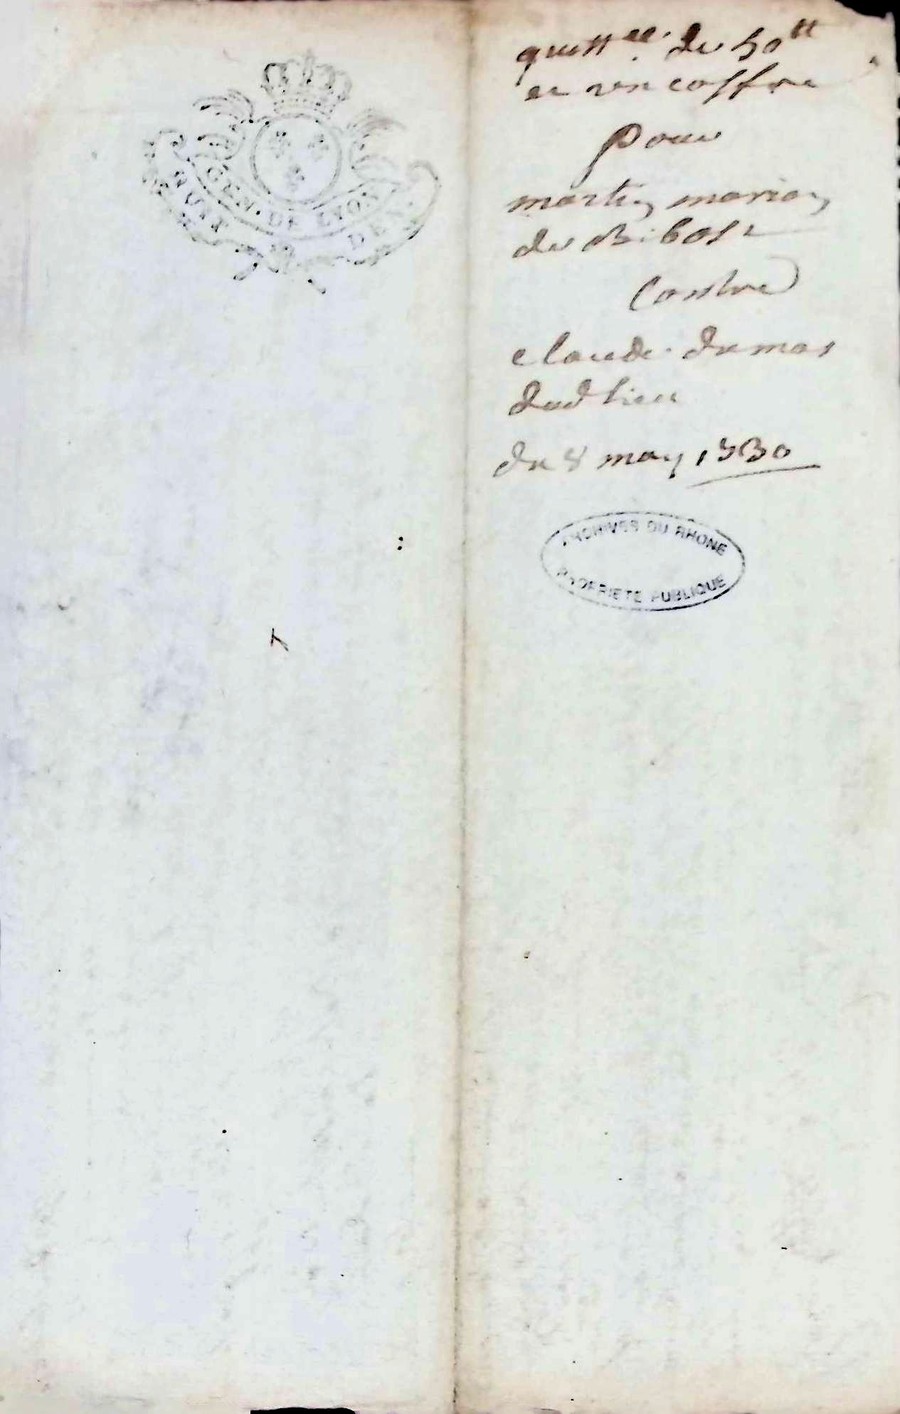 GEN. DE LYON
HUIT DEN.
quitt.ce de 50 tt
et un coffre
pour
martin marion
de Bibost
Contre
claude dumas
dud lieu
du 8 may 1730
ARCHIVES DU RHONE
PROPRIETE PUBLIQUE